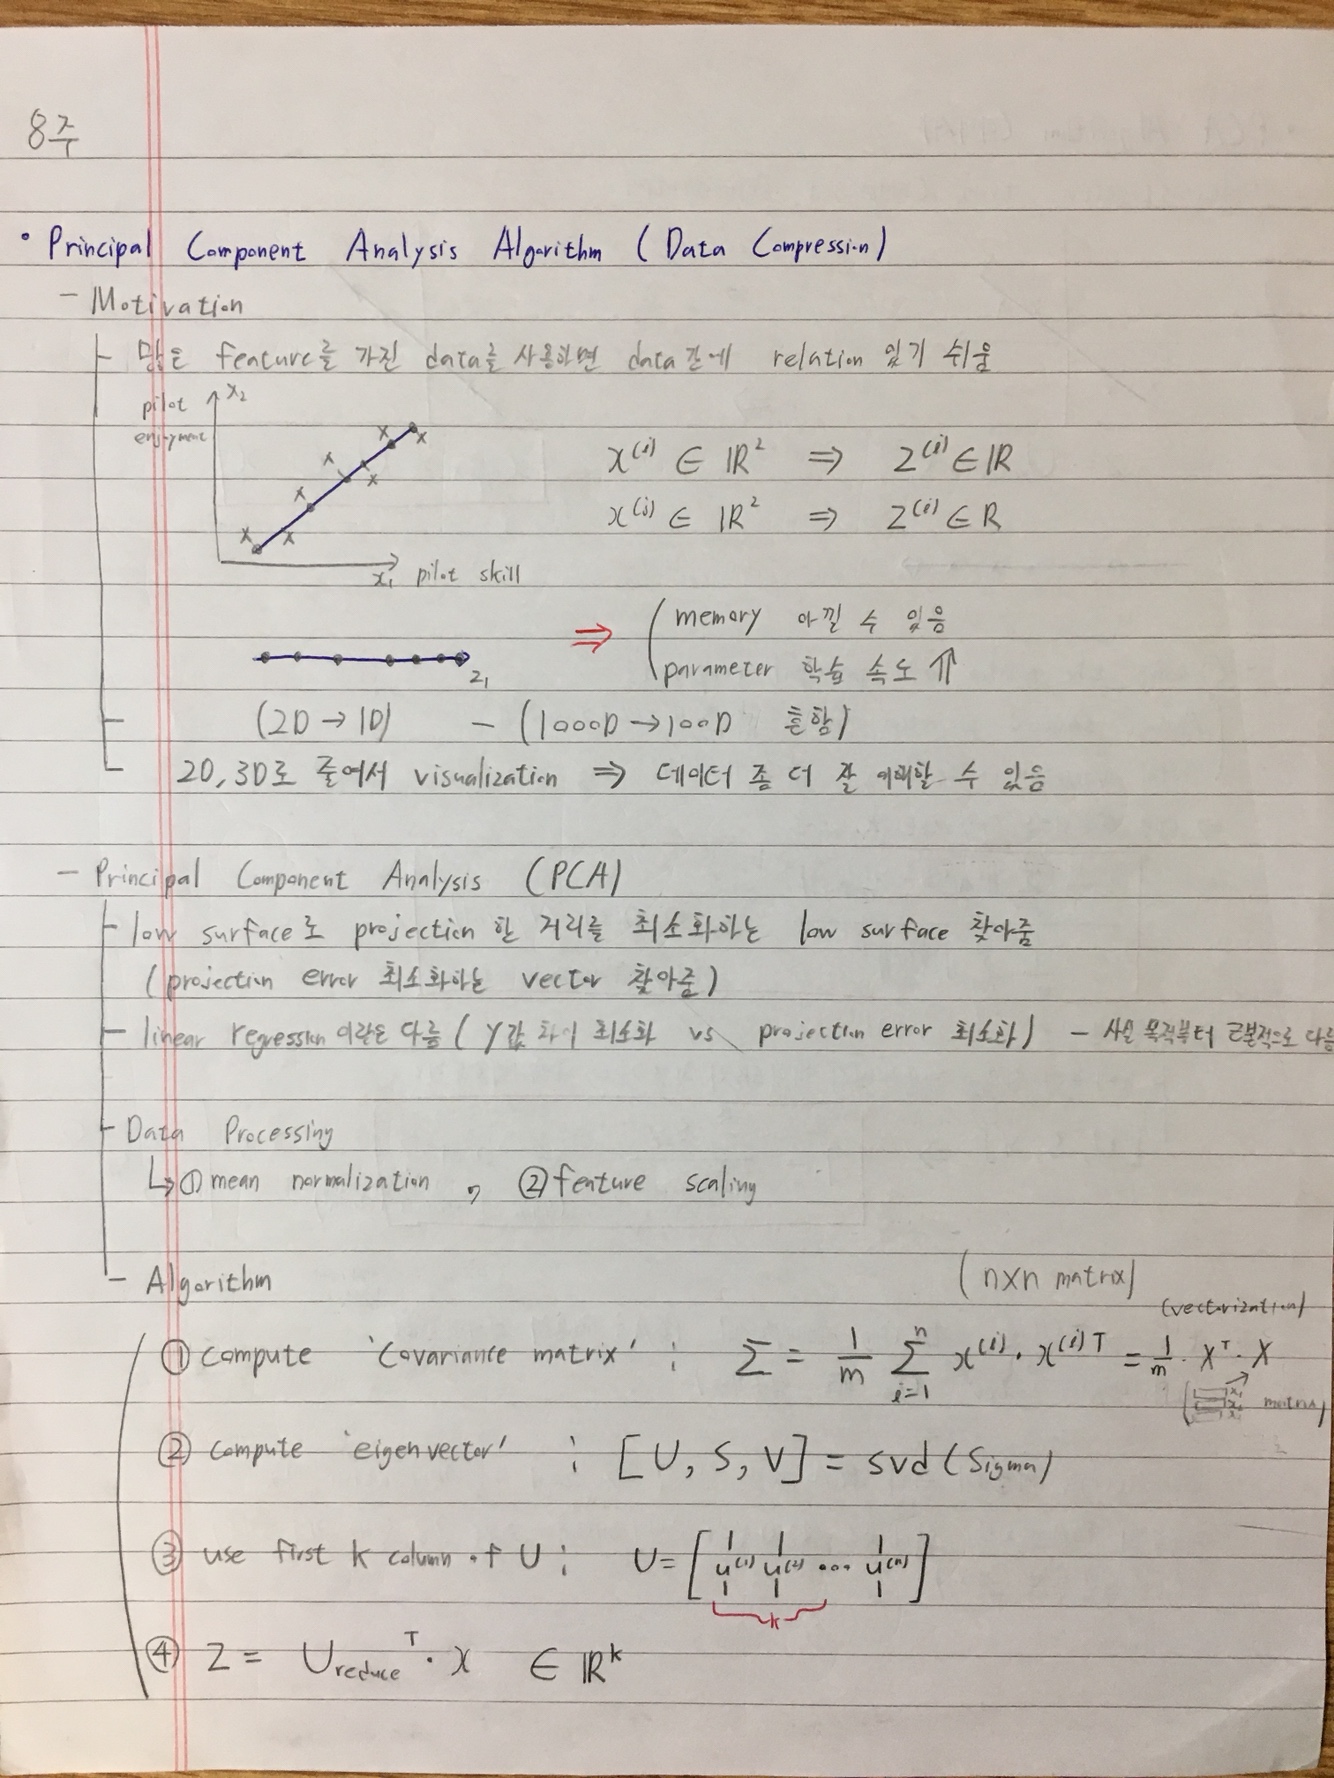 8주
• Principal Component Analysis Algorithm (Data Compression)
- Motivation
많은 feature를 가진 data를 사용하면 data간에 relation 있기 쉬움
pilot enjoyment
x₂
x⁽ⁱ⁾ ∈ ℝ² ⇒ z⁽ⁱ⁾ ∈ ℝ
x⁽ⁱ⁾ ∈ ℝ² ⇒ z⁽ⁱ⁾ ∈ R
x₁ pilot skill
⇒ memory 아낄 수 있음
parameter 학습 속도 ⇑
z₁
(2D → 1D) - (1000D → 100D 흔함)
2D, 3D로 줄여서 visualization ⇒ 데이터 좀 더 잘 이해할 수 있음
- Principal Component Analysis (PCA)
- low surface로 projection 한 거리를 최소화하는 low surface 찾아줌
(projection error 최소화하는 vector 찾아줌)
- linear regression 이랑은 다름 (y값 차이 최소화 vs projection error 최소화) - 사실 목적부터 근본적으로 다름
- Data Processing
↳ ① mean normalization, ② feature scaling
- Algorithm
(n×n matrix)
(vectorization)
① compute 'Covariance matrix' : Σ = 1/m Σⁿᵢ₌₁ x⁽ⁱ⁾ · x⁽ⁱ⁾ᵀ = 1/m · Xᵀ · X
matrix
② compute 'eigenvector' : [U, S, V] = svd(Sigma)
③ use first k column of U : U = [u⁽¹⁾ u⁽²⁾ ... u⁽ⁿ⁾]
k
④ z = U_reduceᵀ · x ∈ ℝᵏ